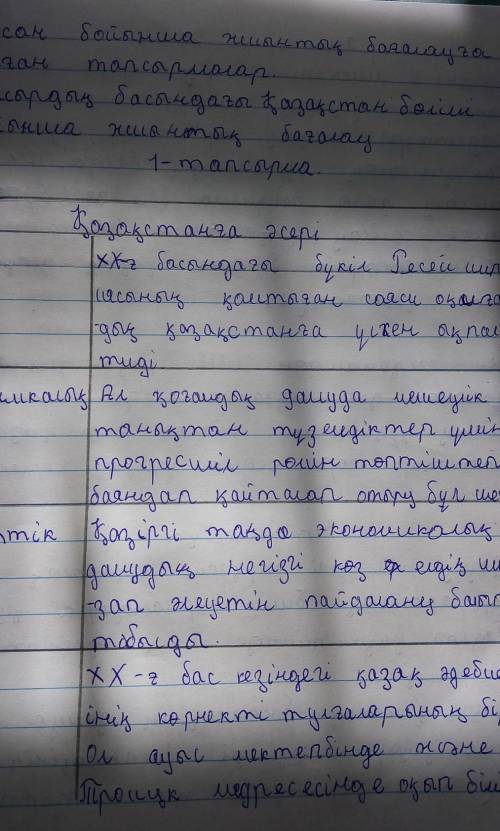 сан бойынша жиынтық бағалауға
ған тапсырмалар.
асырдың басындағы Қазақстан бөлімі
ынша жиынтық бағалау
1-тапсырма.
Қазақстанға әсері
ХХ-ғ басындағы бүкіл Ресей импе
иясының қамтыған саяси оқиға
-дың қазақстанға үлкен ықпал
тиді
омикалық Ал қоғамдық дамуда мешеулік
танықтан түземдіктер үшін
прогресшіл рөлін төптіштеп
баяндап қайталап отыру бұл
тік Қазіргі таңда экономикалық
дамудың негізгі көз елдің
-зап әлеуетін пайдалану
табысды.
ХХ-ғ бас кезіндегі қазақ әдебие
інің көрнекті тұлғаларының бір
Ол ауыл мектебінде және
Троицк медресесінде оқып біл